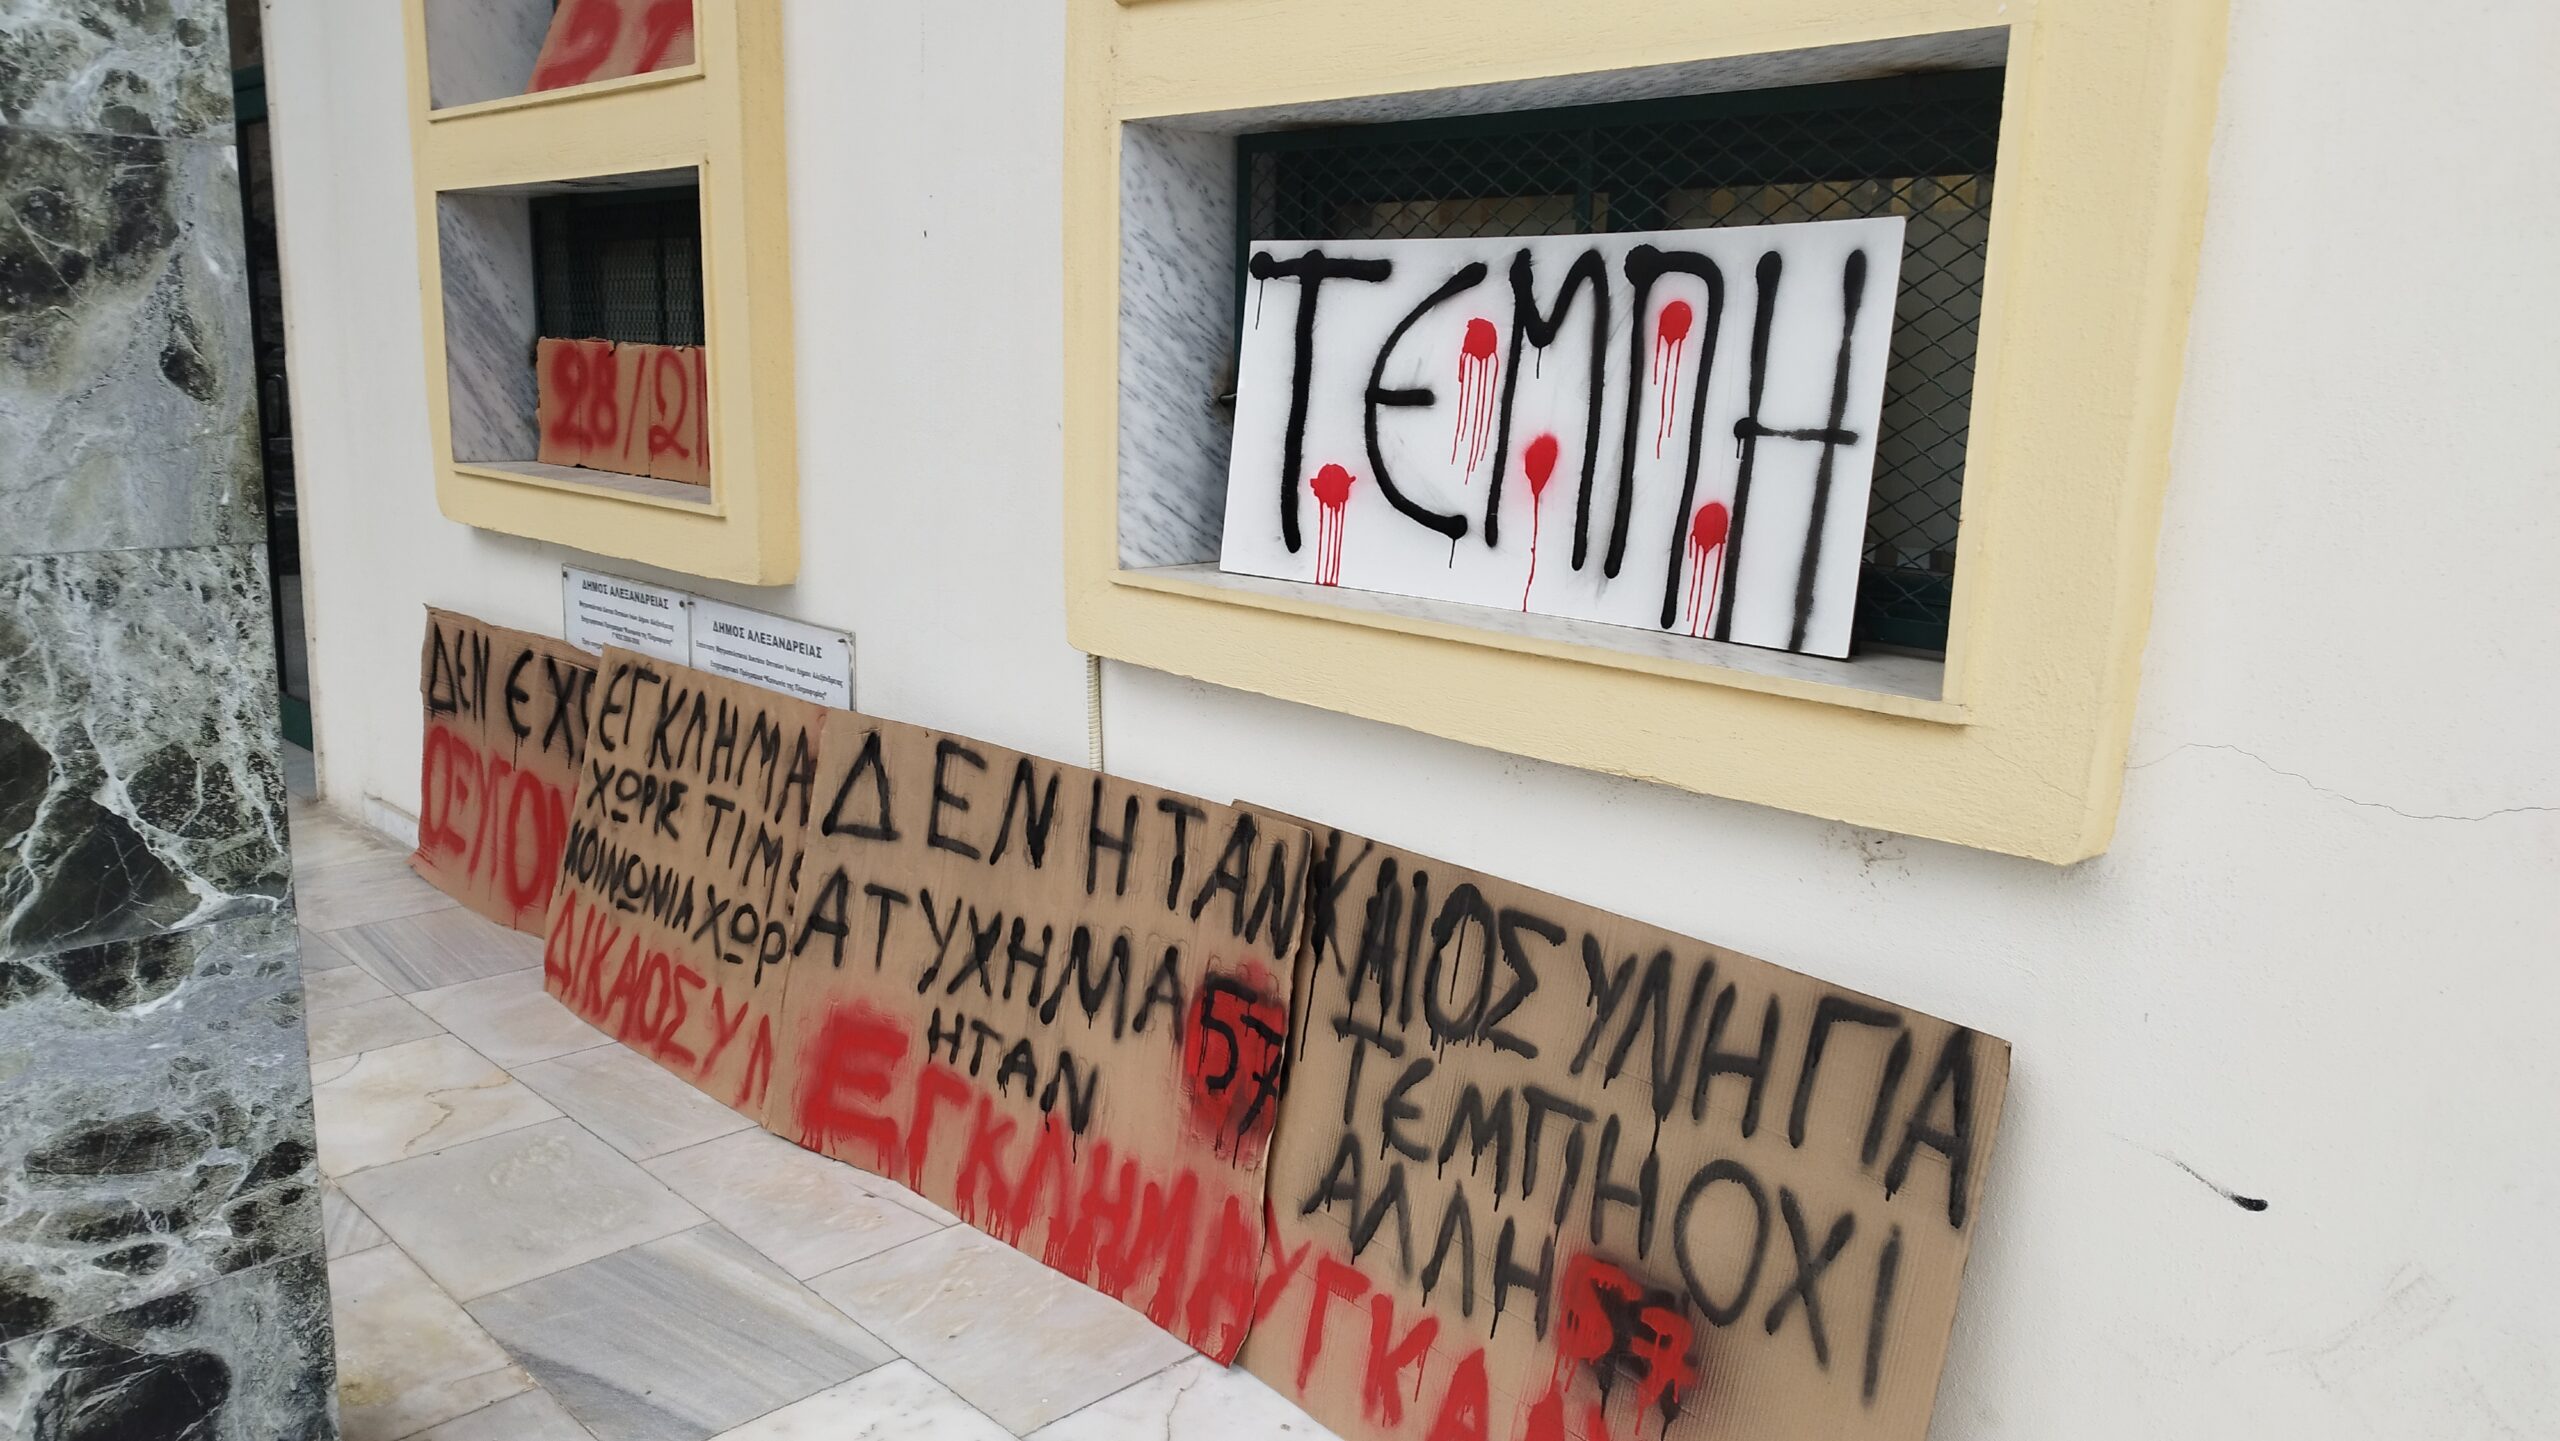 28/2
ΤΕΜΠΗ
ΔΗΜΟΣ ΑΛΕΞΑΝΔΡΕΙΑΣ
ΔΗΜΟΣ ΑΛΕΞΑΝΔΡΕΙΑΣ
ΔΕΝ ΕΧΩ
ΟΞΥΓΟΝ
ΕΓΚΛΗΜΑ
ΧΩΡΙΣ ΤΙΜΩ
ΚΟΙΝΩΝΙΑ ΧΩΡ
ΔΙΚΑΙΟΣΥΝ
ΔΕΝ ΗΤΑΝ
ΑΤΥΧΗΜΑ
57
ΗΤΑΝ
ΕΓΚΛΗΜΑ
ΚΑΙΟΣΥΝΗ ΓΙΑ
ΤΕΜΠΗ ΟΧΙ
ΑΛΛΗ 57
ΥΓΚΑΛ